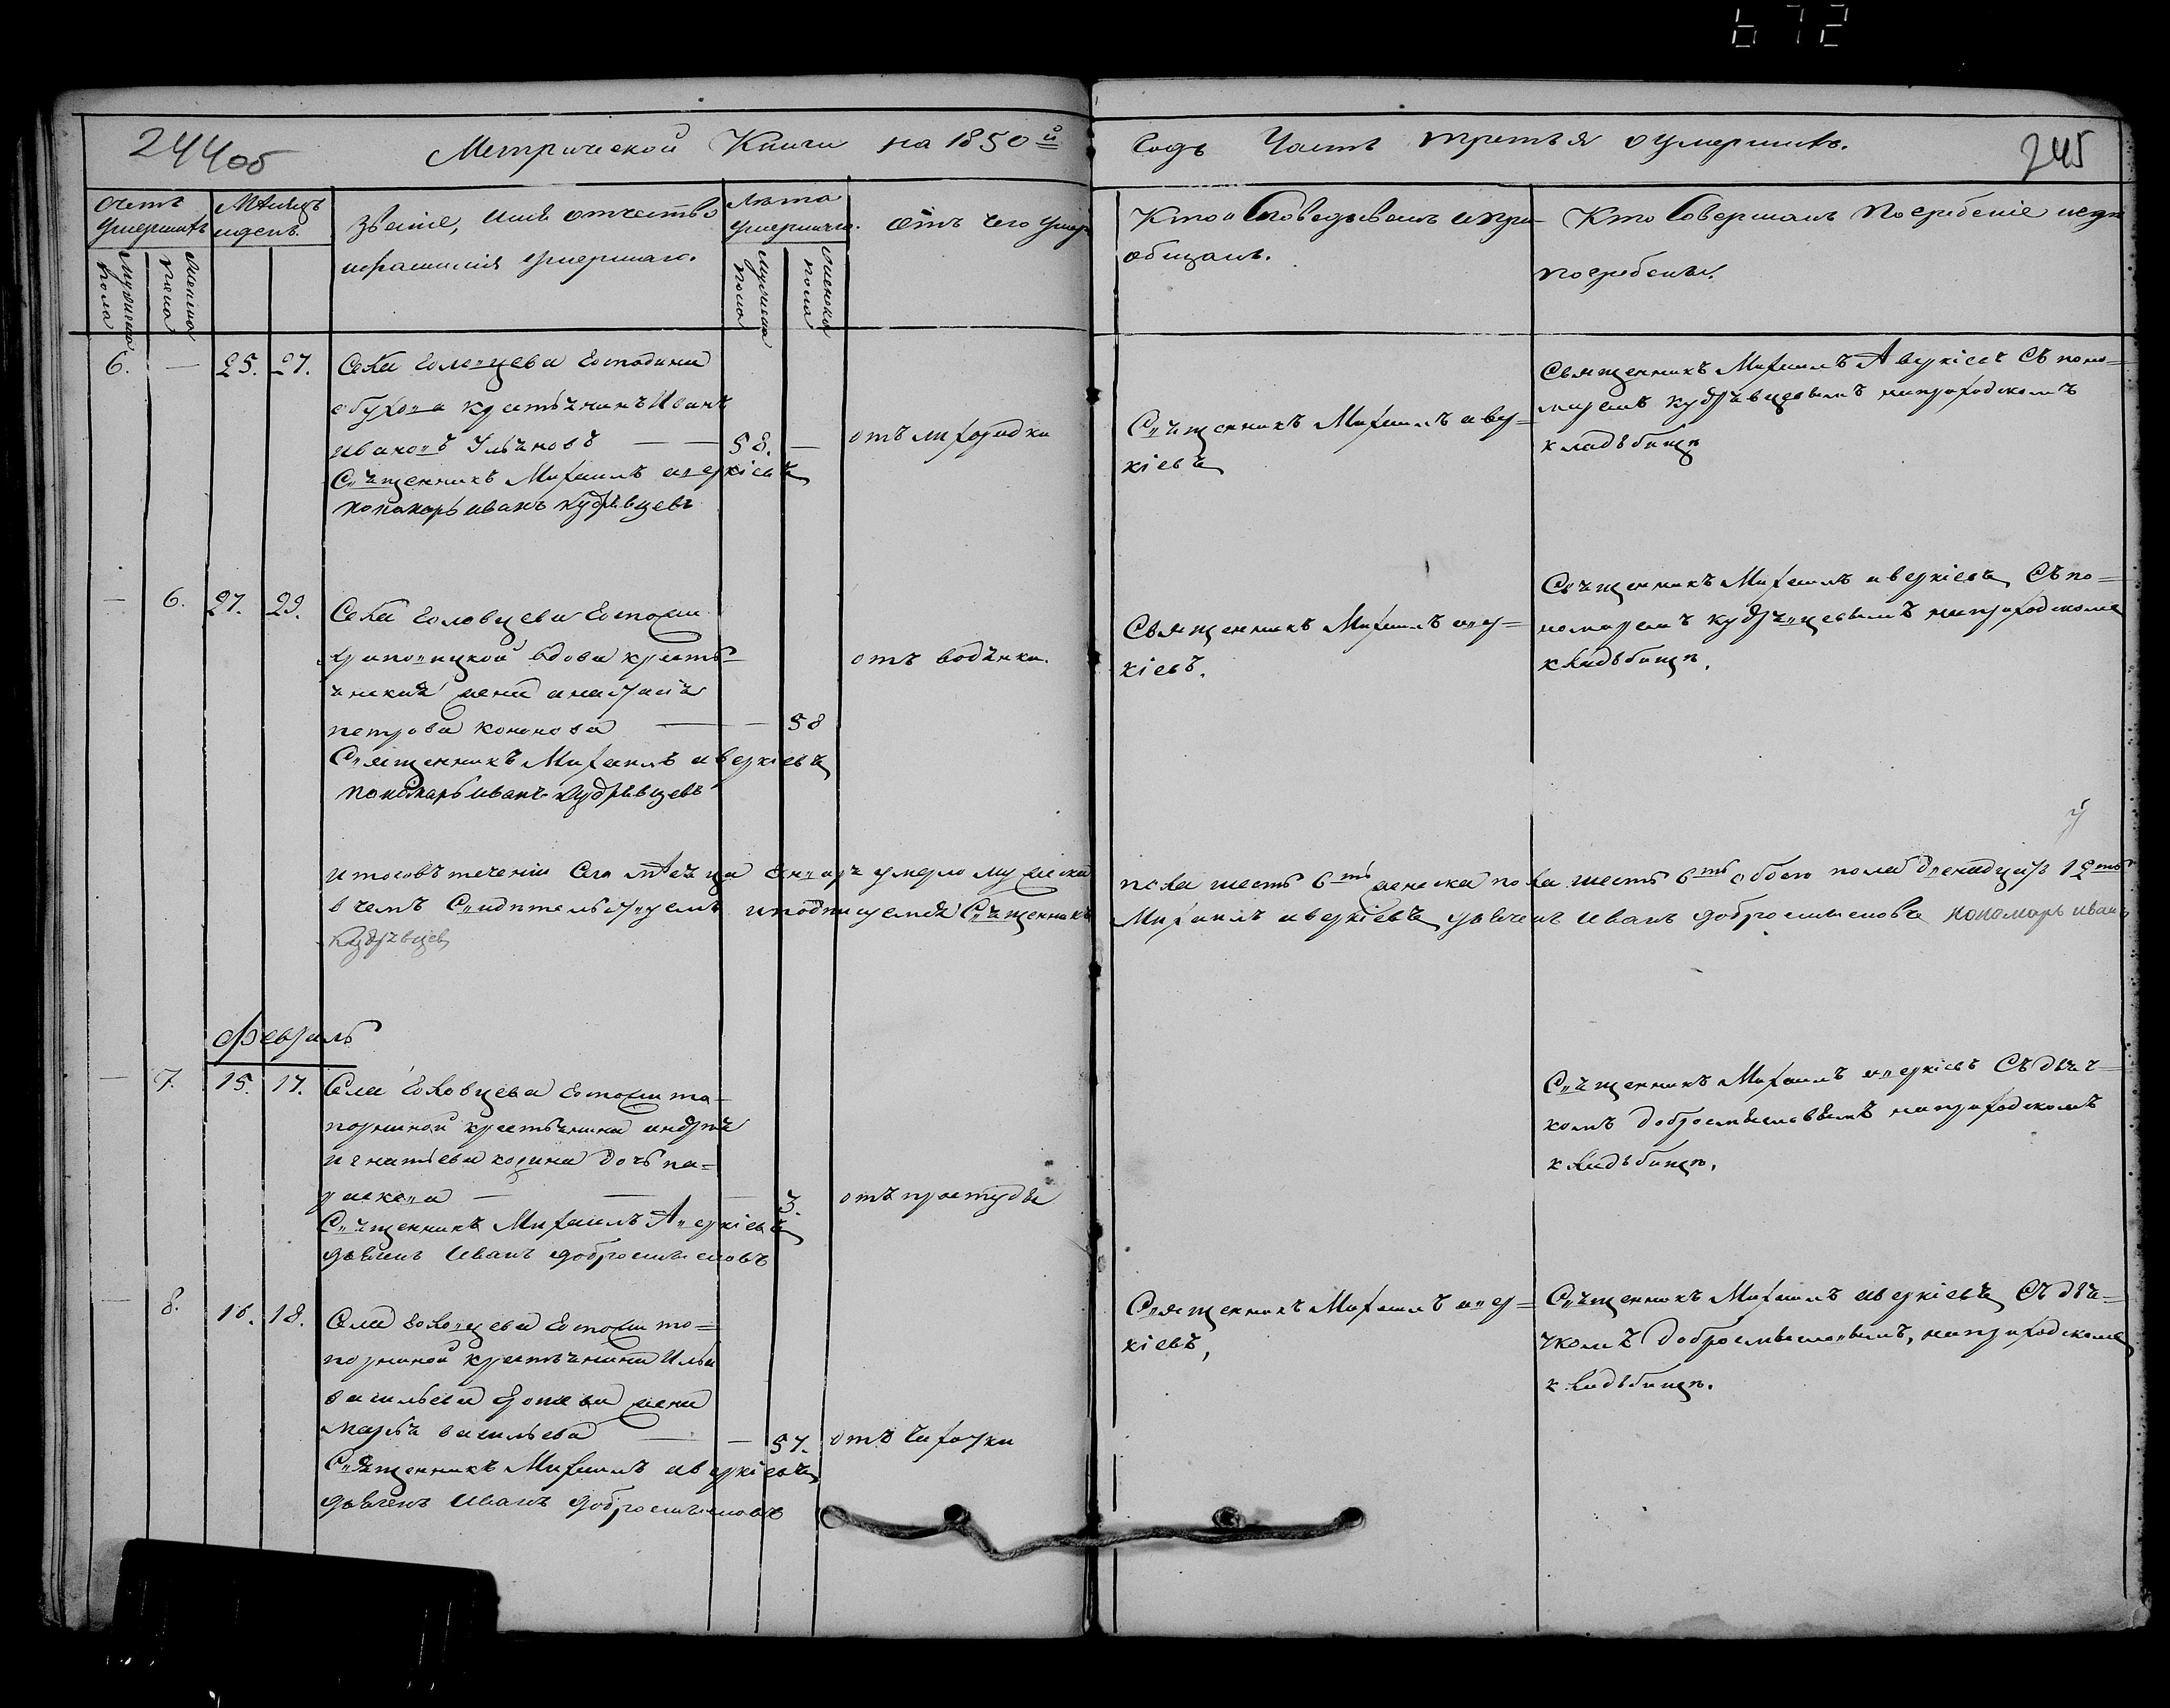 672
244об
Метрической Книги на 1850й
Годъ Часть третья о умершихъ.
245
Счетъ умершихъ
Мѣсяцъ и день.
Званіе, имя отчество
и фамилія умершаго.
Лѣта умершаго.
Отъ чего умеръ
Кто Исповѣдывалъ и прі-
общалъ.
Кто Совершалъ Погребеніе и гдѣ
погребены.
Мужеска пола
Женска пола
Мужеска пола
Женска пола
6. — 25. 27.
Села Головцева Господина
обухова крестьянинъ Иванъ
ивановъ Ульяновъ — — 58. —
Священникъ Михаилъ аверкіевъ
пономарь иванъ кудрявцевъ
отъ лихорадки
Священникъ Михаилъ авер=
кіевъ
Священникъ Михаилъ Аверкіевъ Съ поно=
маремъ кудрявцевымъ наприходскомъ
кладбищѣ
— 6. 27. 29.
Села Головцева Госпожи
вдова кресть=
янская жена анастасія
петрова кононова — — 58
Священникъ Михаилъ аверкіевъ
пономарь иванъ кудрявцевъ
отъ водянки.
Священникъ Михаилъ авер=
кіевъ.
Священникъ Михаилъ аверкіевъ Съ по=
номаремъ кудрявцевымъ наприходскомъ
кладбищѣ.
итого въ теченіи Сего мѣсяца Генваря умерло мужеска пола шесть 6ть женска пола шесть 6ть обоего пола двенадцать 12ть
в чемъ Свидѣтельствуемъ и подписуемся Священникъ Михаилъ аверкіевъ дьячекъ Иванъ добросмысловъ пономарь иванъ
кудрявцев
Февраль
— 7. 15. 17.
Села Головцева Госпожи то=
порниной крестьянина андрея
игнатьева дочь па=
раскева — — — 3.
Священникъ Михаилъ Аверкіевъ
дьячекъ Иванъ добросмысловъ
отъ простуды
Священникъ Михаилъ аверкіевъ Съ дьяч=
комъ добросмысловымъ наприходскомъ
кладбищѣ.
— 8. 16. 18.
Села Головцева Госпожи то=
порниной крестьянина Ильи
васильева жена
марья васильева — — 57.
Священникъ Михаилъ аверкіевъ
дьячекъ Иванъ добросмысловъ
отъ чахотки
Священникъ Михаилъ авер=
кіевъ,
Священникъ Михаилъ аверкіевъ Съ дья=
чкомъ добросмысловымъ, наприходскомъ
кладбищѣ.